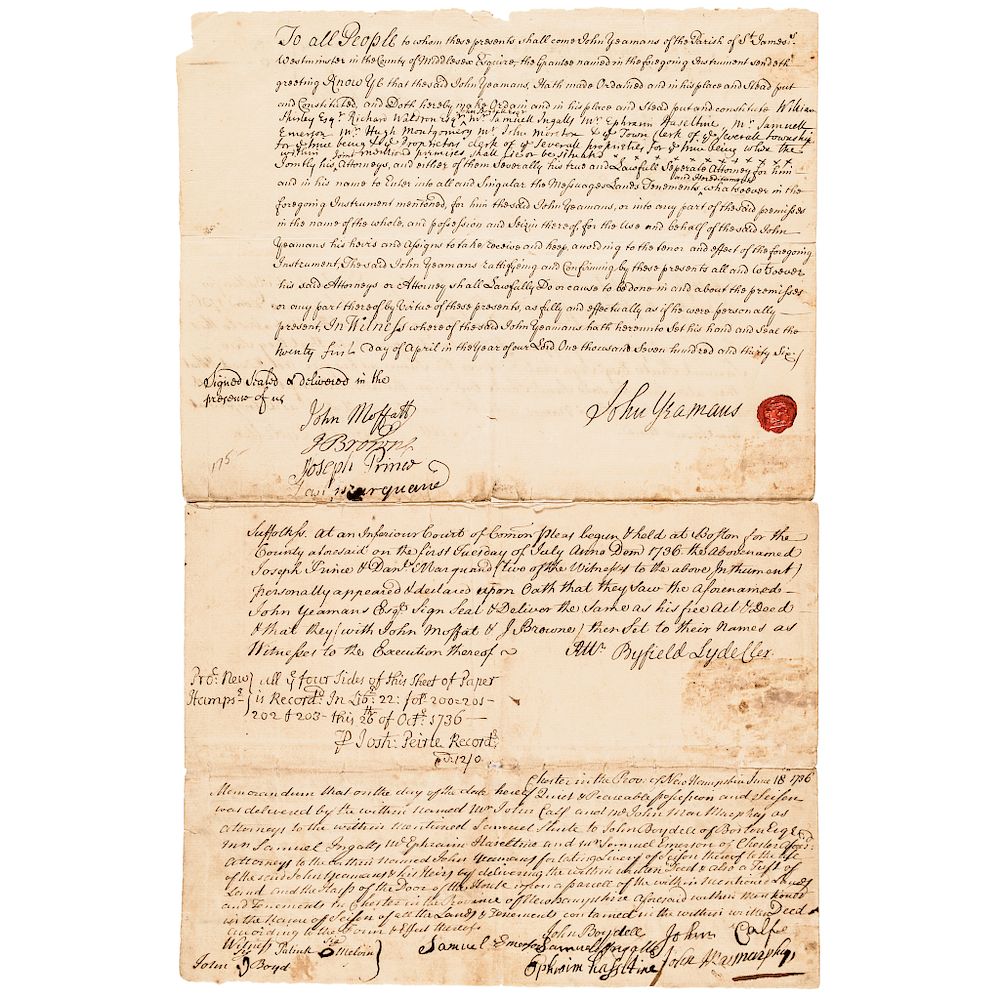 To all People to whom these presents shall come John Yeamans of the Parish of St. James's
Westminster in the County of Middlesex Esquire, the Grantee named in the foregoing Instrument sendeth
greeting Know Ye that the said John Yeamans, Hath made Ordained and in his place and Stead put
and Constituted, and Doth hereby make Ordain and in his place and Stead put and constitute William
Shirley Esqr. Richard Walstron Esqr. Mr. Samuell Ingalls Mr. Ephraim Haseltine, Mr. Samuell
Emerson Mr. Hugh Montgomery Mr. John Moreton & ye Town Clerk of ye Severall township
for ye time being & ye Proprietors Clerk of ye Severall proprieties for ye time being where the
within mentioned premises shall lie or be Situated
Jointly his Joint Attorneys, and either of them Severally his true and Lawfull Seperate Attorney for him
and in his name to Enter into all and Singular the Messuages Lands Tenements and Hereditaments whatsoever in the
foregoing Instrument mentioned, for him the said John Yeamans, or into any part of the said premisses
in the name of the whole, and possession and Seizin thereof, for the Use and behalf of the said John
Yeamans his heirs and Assigns to take receive and keep, according to the tenor and effect of the foregoing
Instrument, The said John Yeamans rattifying and Confirming by these presents all and Whatsoever
his said Attorneys or Attorney shall Lawfully Do or cause to be done in and about the premisses
or any part thereof by Virtue of these presents, as fully and effectually as if he were personally
present, In Witness whereof the said John Yeamans hath hereunto Set his hand and Seal the
twenty first Day of April in the Year of our Lord One thousand Seven hundred and thirty Six/
Signed Sealed & delivered in the
presence of us
John Moffatt
J Browne
Joseph Prince
Dan Marquand
John Yeamans
175
Suffolk ss. At an Inferiour Court of Comon pleas begun & held at Boston for the
County aforesaid on the first Tuesday of July Anno Dom 1736 the abovenamed
Joseph Prince & Danl. Marquand (two of the Witnesses to the above Instrument)
personally appeared & declared upon Oath that they saw the aforenamed
John Yeamans Esqr. Sign Seal & Deliver the Same as his free Act & Deed
& that they (with John Moffat & J Browne) then Set to their Names as
Witnesses to the Execution thereof
Attr. Byfield Lydeller
Pro: New Hamps: } all ye four Sides of this Sheet of Paper
is Recordd. In Lib. 22: fol. 200-201-
202 & 203 - this 26th of Octr. 1736 -
p Josh: Peirce Recordr.
pd. 12/0
Chester in the Prov. of New Hampshire June 18th 1736
Memorandum that on the day of the date hereof Quiet & Peaceable possession and Seisen
was delivered by the within named Mr John Calf and Mr John Mac Murphey as
Attorneys to the within mentioned Samuel Shute to John Boydell of Boston Esqr.
Mr Samuel Ingalls Mr Ephraim Haseltine and Mr Samuel Emerson of Chester
Attorneys to the within Named John Yeamans for taking Livery of Seisen thereof to the Use
of the said John Yeamans & his Heirs by delivering the within written Deed & also a Turf of
Land and the Hasp of the Door of the House upon a parcell of the within Mentioned Lands
and Tenements in Chester in the Province of New Hampshire Aforesaid within mentioned
in the Name of Seisen of all the Lands & Tenements contained in the within written Deed
according to the Form & Effect thereof
Witness Patrick Melvin
John Boyd
Samuel Emerson
John Boydell
Samuel Ingalls
Ephraim Hasseltine
John Calfe
John Macmurphy